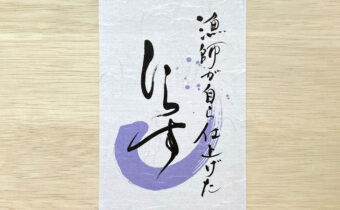 漁師が自ら仕上げた
しらす